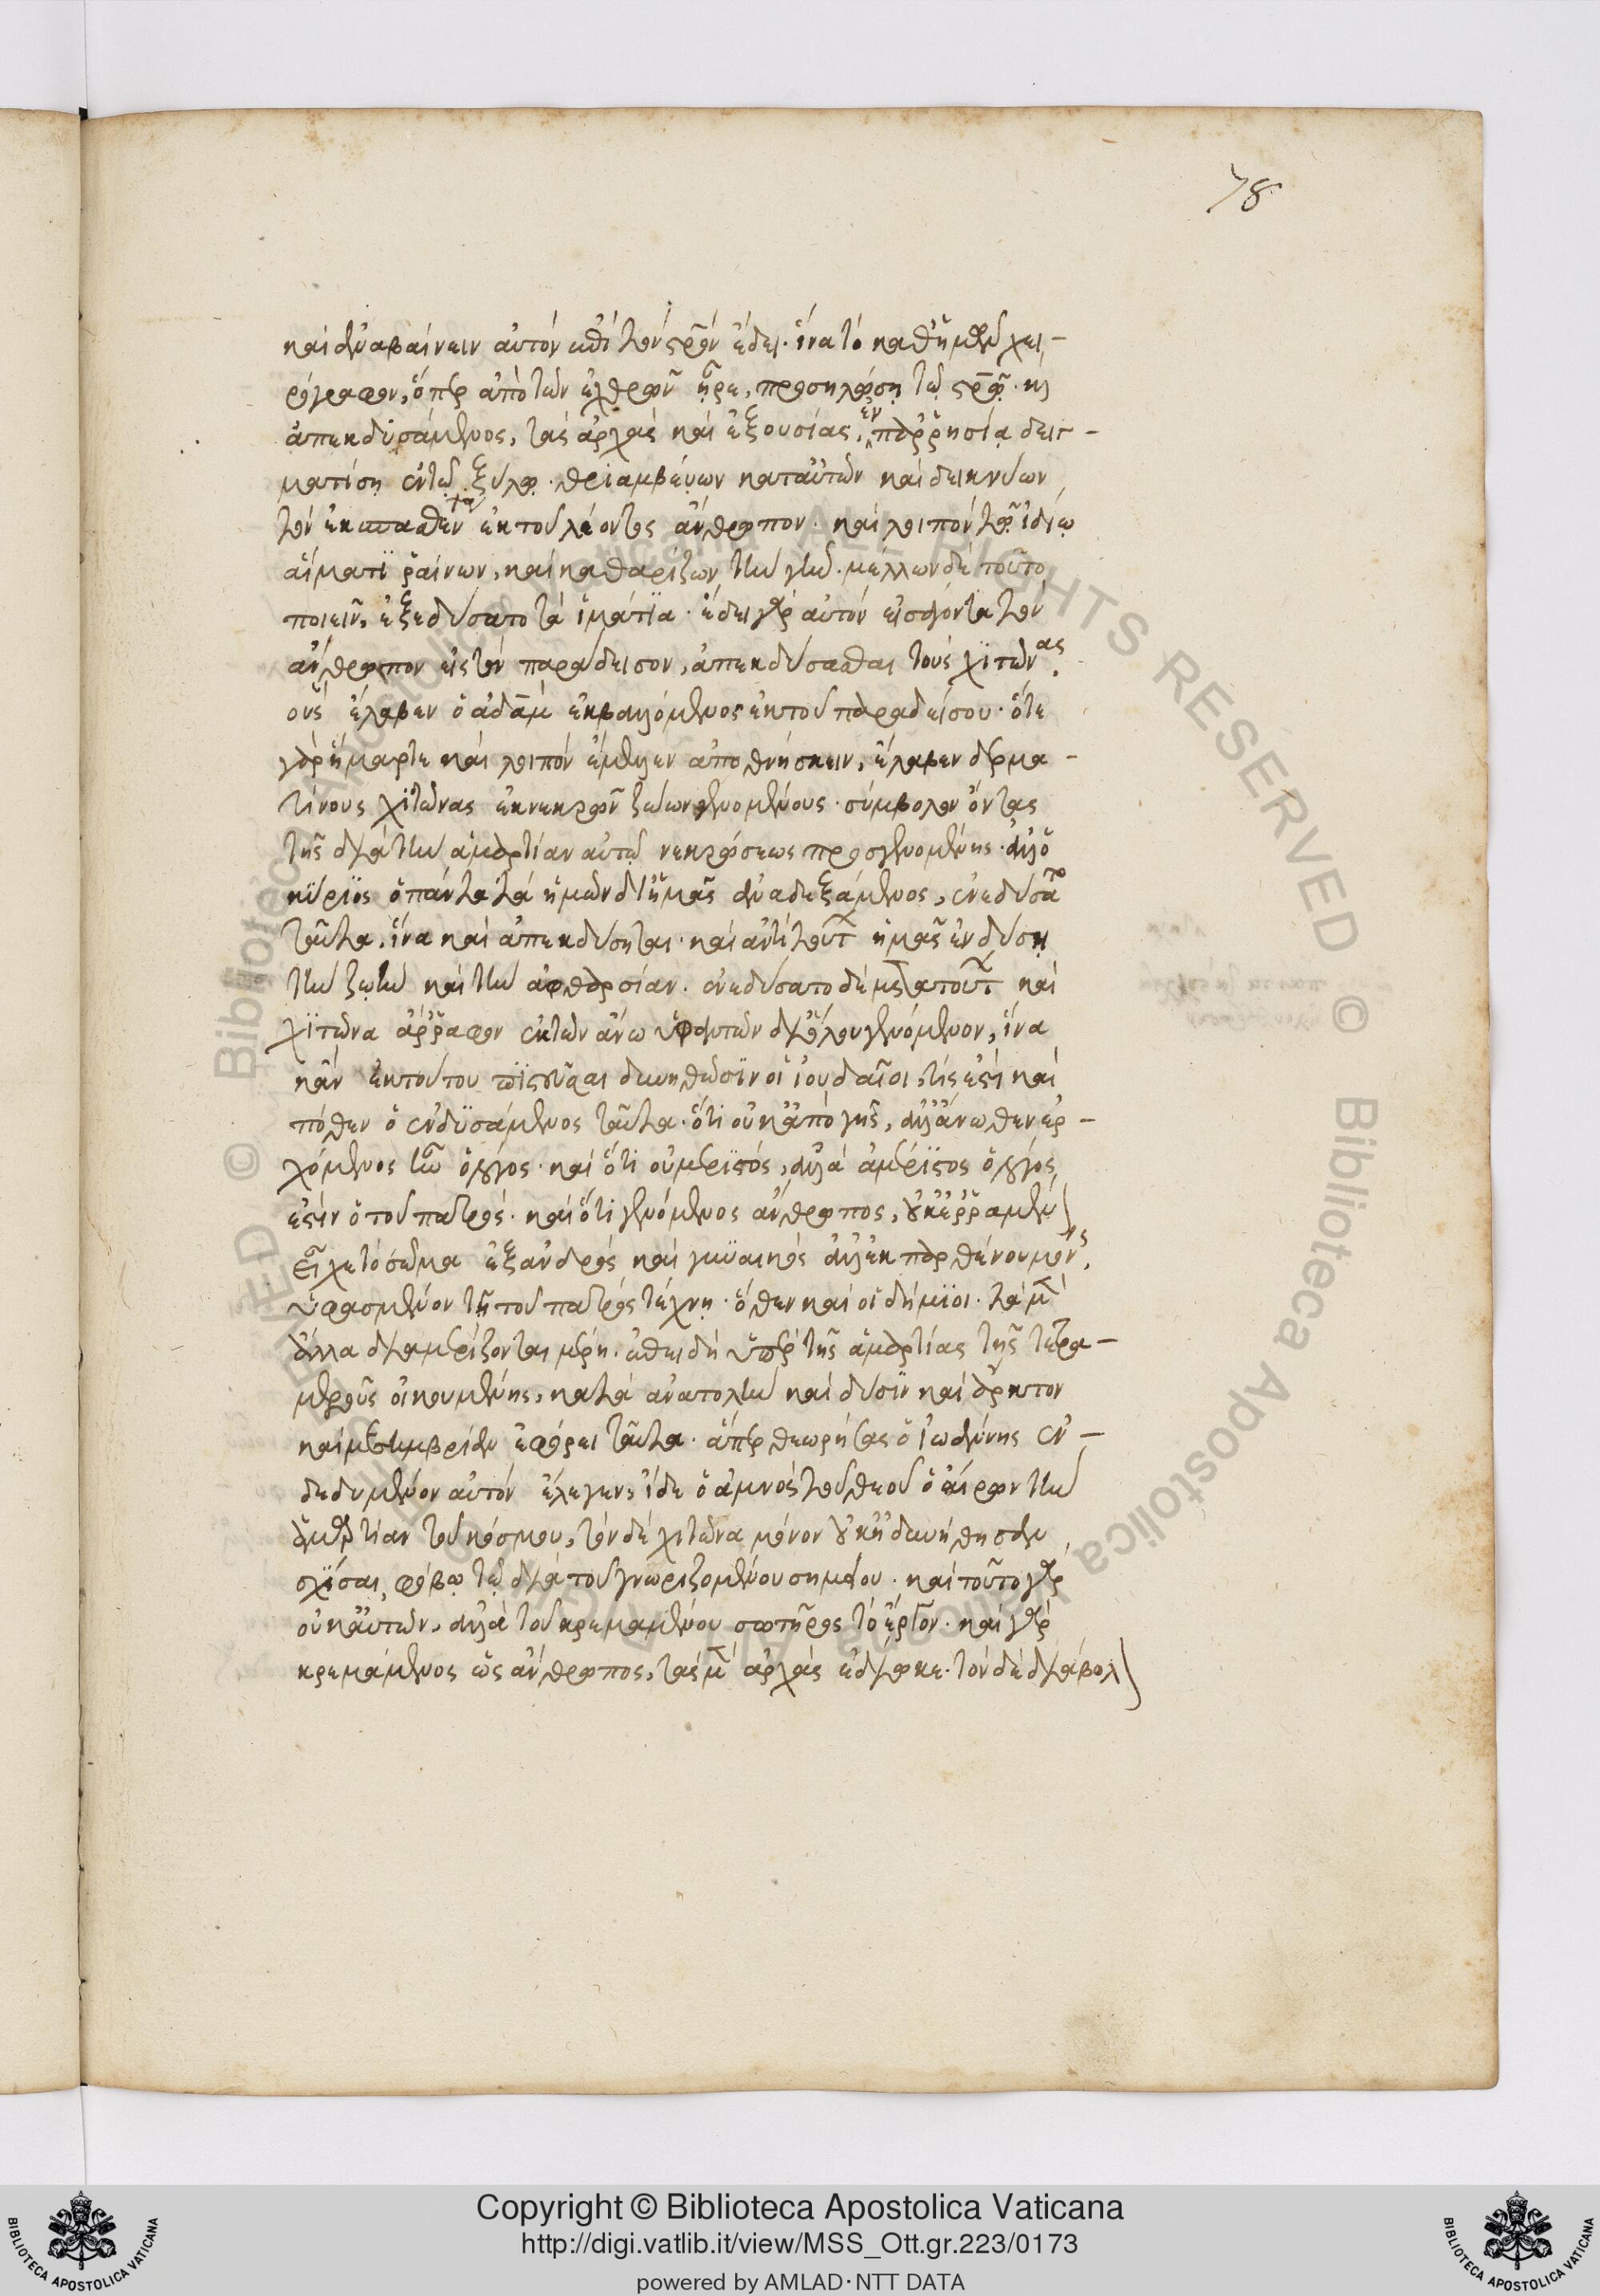 78
καὶ ἀναβαίνειν αὐτὸν ἐπὶ τὸν σρὸν ἔδει. ἵνα τὸ καθ' ἡμῶν χει-
ρόγραφον, ὅπερ ἀπὸ τῶν ἐχθρῶν ἦρε, προσηλώσῃ τῷ σρῷ. καὶ
ἀπεκδυσάμενος, τὰς ἀρχὰς καὶ ἐξουσίας, ἐν παῤῥησίᾳ δειγ-
ματίσῃ ἐν τῷ ξύλῳ. θριαμβεύων κατ' αὐτῶν καὶ δεικνύων
τὸν ἐκσπασθέντα ἐκ τοῦ λέοντος ἄνθρωπον. καὶ λοιπὸν τῷ ἰδίῳ
αἵματι ῥαίνων, καὶ καθαρίζων τὴν γῆν. μέλλων δὲ τοῦτο
ποιεῖν, ἐξεδύσατο τὰ ἱμάτια. ἔδει γὰρ αὐτὸν εἰσάγοντα τὸν
ἄνθρωπον εἰς τὸν παράδεισον, ἀπεκδύσασθαι τοὺς χιτῶνας.
οὓς ἔλαβεν ὁ ἀδὰμ ἐκβαλλόμενος ἐκ τοῦ παραδείσου. ὅτε
γὰρ ἥμαρτε καὶ λοιπὸν ἔμελλεν ἀποθνήσκειν, ἔλαβεν δερμα-
τίνους χιτῶνας ἐκ νεκρῶν ζώων γενομένους. σύμβολον ὄντας
τῆς διὰ τὴν ἁμαρτίαν αὐτῷ νεκρώσεως προσγενομένης. ἀλλ' ὁ
κύριος ὁ πάντα τὰ ἡμῶν δι' ἡμᾶς ἀναδεξάμενος, ἐνεδύσατο
ταῦτα, ἵνα καὶ ἀπεκδύσηται. καὶ ἀντὶ τούτ ἡμᾶς ἐνδύσῃ
τὴν ζωὴν καὶ τὴν ἀφθαρσίαν. ἐνεδύσατο δὲ μετὰ τούτ καὶ
χιτῶνα ἄῤῥαφον ἐκ τῶν ἄνω ὑφαντῶν δι' ὅλου γενόμενον, ἵνα
κἂν ἐκ τούτου πιστεῦσαι δυνηθῶσιν οἱ ἰουδαῖοι, τίς ἐστὶ καὶ
πόθεν ὁ ἐνδυσάμενος ταῦτα. ὅτι οὐκ ἀπὸ γῆς, ἀλλ' ἄνωθεν ἐρ-
χόμενος ἦν ὁ λόγος. καὶ ὅτι οὐ μεριστός, ἀλλὰ ἀμέριστος ὁ λόγος
ἐστὶν ὁ τοῦ πατρός. καὶ ὅτι γενόμενος ἄνθρωπος, οὐκ ἐῤῥαμμέν
εἶχε τὸ σῶμα ἐξ ἀνδρὸς καὶ γυναικὸς ἀλλ' ἐκ παρθένου μόνης,
ὑφασμένον τῇ τοῦ πατρὸς τέχνῃ. ὅθεν καὶ οἱ δήμιοι. τὰ μ
ἄλλα διαμερίζονται μέρη. ἐπειδὴ ὑπὲρ τῆς ἁμαρτίας τῆς τετρα-
μεροῦς οἰκουμένης, κατὰ ἀνατολὴν καὶ δύσιν καὶ ἄρκτον
καὶ μεσημβρίαν ἐφόρει ταῦτα. ἅπερ θεωρήσας ὁ ἰωάννης ἐν-
δεδυμένον αὐτὸν ἔλεγεν, ἴδε ὁ ἀμνὸς τοῦ θεοῦ ὁ αἴρων τὴν
ἁμαρτίαν τοῦ κόσμου, τὸν δὲ χιτῶνα μόνον οὐκ ἠδυνήθησαν
σχίσαι, φόβῳ τῷ διὰ τοῦ γνωριζομένου σημείου. καὶ τοῦτο γὰρ
οὐκ αὐτῶν, ἀλλὰ τοῦ κρεμαμένου σωτῆρος τὸ ἔργον. καὶ γὰρ
κρεμάμενος ὡς ἄνθρωπος, τὰς μ ἀρχὰς ἐδίωκε. τὸν δὲ διάβολ
Copyright © Biblioteca Apostolica Vaticana
http://digi.vatlib.it/view/MSS_Ott.gr.223/0173
powered by AMLAD·NTT DATA